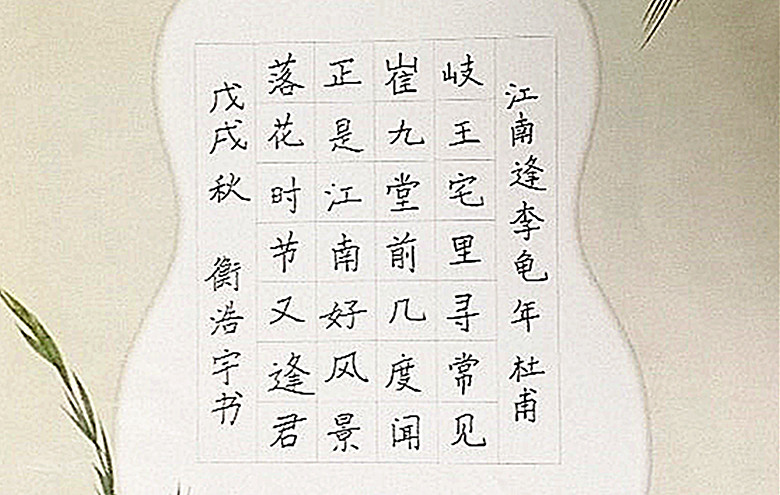 江南逢李龟年 杜甫
岐王宅里寻常见
崔九堂前几度闻
正是江南好风景
落花时节又逢君
戊戌秋 衡浩宇书